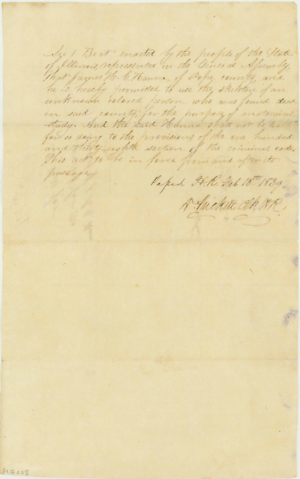 Sec 1 Be it enacted by the people of the State
of Illinois represented in the General Assembly
that James H. of county, and
he is hereby permitted to use the skeleton of an
unknown colored person who was found dead
in said county, for the purpose of anatomical
study. And the said shall not be
for so using to the provisions of the one hundred
and thirty eighth section of the criminal code
This act to be in force from and after its
passage
Passed H.R. Feb 18th 1839
D. Prickett Clk H.R.